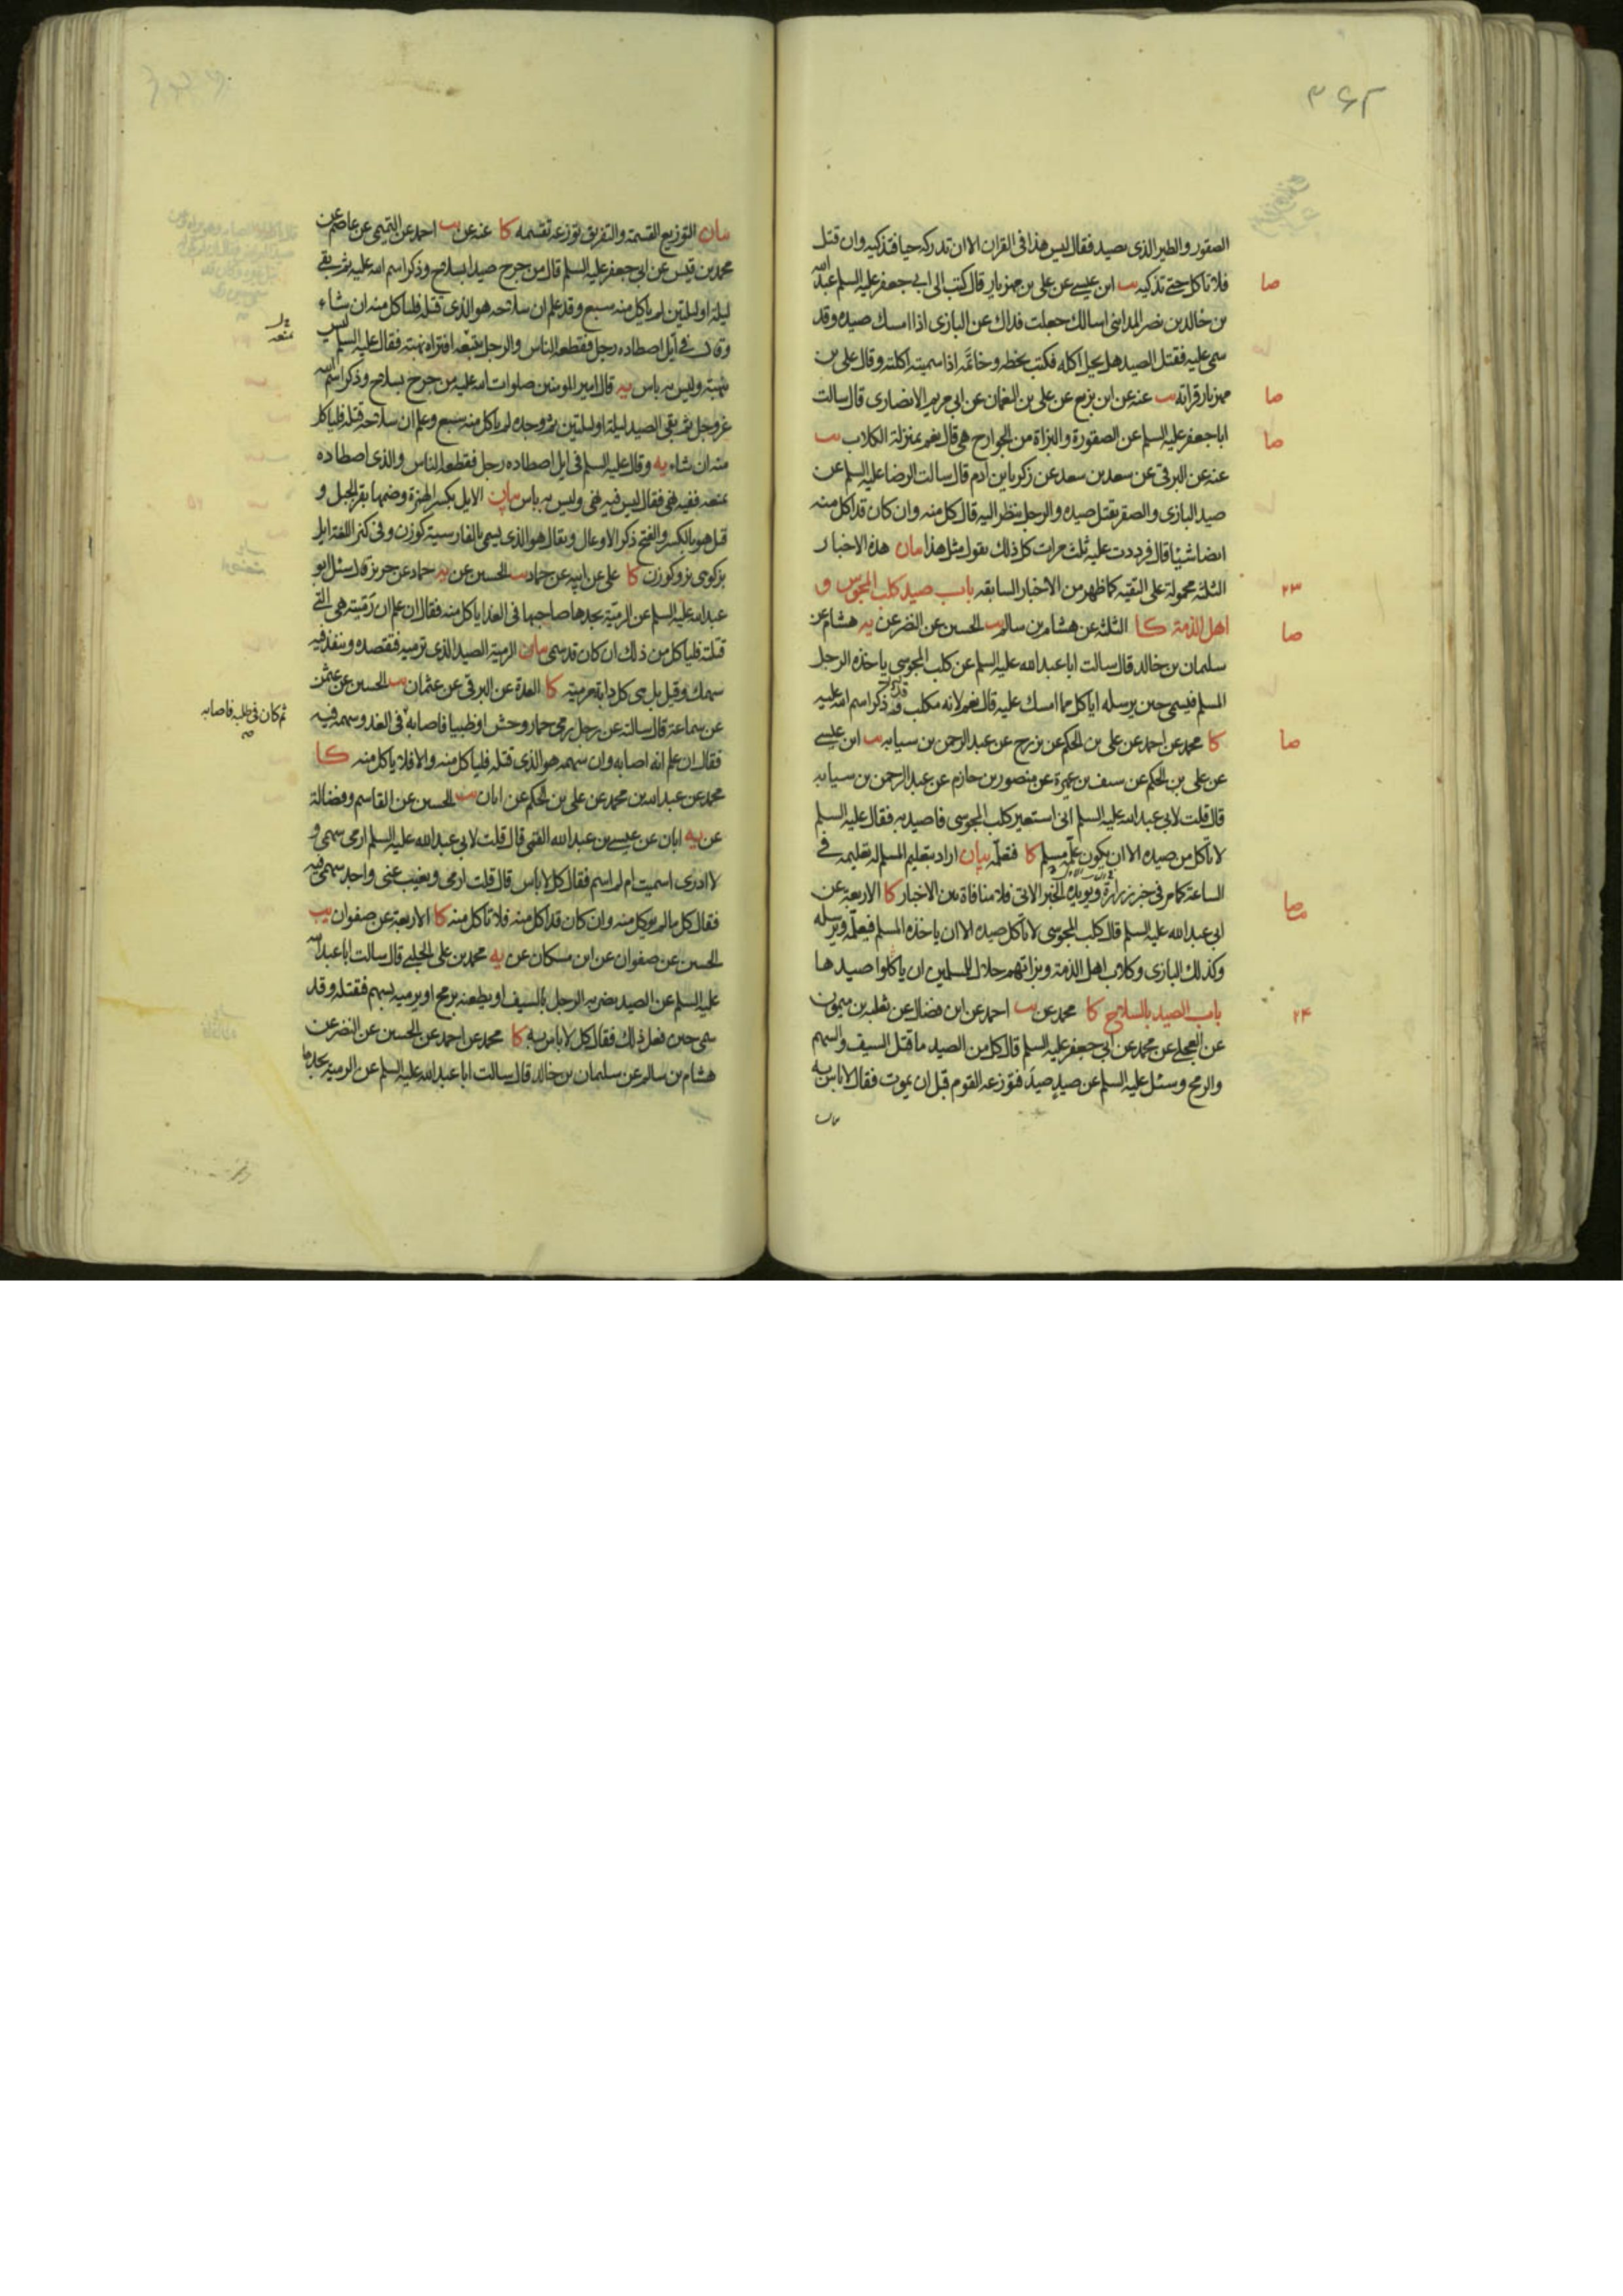 ۳۶۲
الصقور والطير الذى يصيد فقال ليس هذا فى القران الا ان تدركه حيا فتذكيه وان قتل
فلا تأكل حتى تذكيه يب ابن عيسى عن على بن مهزيار قال كتب الى ابى جعفر عليه السلم عبد الله
بن خالد بن نصر المداينى اسالك جعلت فداك عن البازى اذا امسك صيده وقد
سمى عليه فقتل الصيد هل يحل اكله فكتب بخطه وخاتمه اذا سميته اكلته وقال على بن
مهزيار قراته يب عنه عن ابن بزيع عن على بن النعمان عن ابى مريم الانصارى قال سالت
ابا جعفر عليه السلم عن الصقورة والبزاة من الجوارح هى قال نعم بمنزلة الكلاب يب
عنه عن البرقى عن سعد بن سعد عن زكريا بن آدم قال سالت الرضا عليه السلم عن
صيد البازى والصقر يقتل صيده والرجل ينظر اليه قال كل منه وان كان قد اكل منه
ايضا شيئا قال فرددت عليه ثلث مرات كل ذلك يقول مثل هذا بيان هذه الاخبار
الثلثة محمولة على التقية كما ظهر من الاخبار السابقه باب صيد كلب المجوس و
اهل الذمة كا الثلثة عن هشام بن سالم يب الحسين عن النضر عن يه هشام عن
سليمان بن خالد قال سالت ابا عبد الله عليه السلم عن كلب المجوسى ياخذه الرجل
المسلم فيسمى حين يرسله اياكل مما امسك عليه قال نعم لانه مكلب قد ذكر اسم الله عليه
كا محمد عن احمد عن على بن الحكم عن بزرج عن عبد الرحمن بن سيابه يب ابن عيسى
عن على بن الحكم عن سيف بن عميرة عن منصور بن حازم عن عبد الرحمن بن سيابه
قال قلت لابى عبد الله عليه السلم انى استعير كلب المجوسى فاصيد به فقال عليه السلم
لا تأكل من صيده الا ان يكون علمه مسلم كا فتعلمه بيان اراد بتعليم المسلم له تعليمه فى
الساعة كما مر فى خبر زرارة ويؤيده الخبر الاتى فلا منافاة بين الاخبار كا الاربعة عن
ابى عبد الله عليه السلم قال كلب المجوسى لا تأكل صيده الا ان ياخذه المسلم فيعلمه ويرسله
وكذلك البازى وكلاب اهل الذمة وبزاتهم حلال للمسلمين ان ياكلوا صيدها
باب الصيد بالسلاح كا محمد عن يب احمد عن ابن فضال عن ثعلبة بن ميمون
عن العجلى عن محمد عن ابى جعفر عليه السلم قال كل من الصيد ما قتل السيف والسهم
والرمح وسئل عليه السلم عن صيد صيد فتوزعه القوم قبل ان يموت فقال لا باس به
بيان
صا
صا
صا
۲۳
صا
صا
صا
۲۴
بيان التوزيع القسمة والتفريق توزعه تقسمه كا عنه عن يب احمد عن التميمى عن عاصم عن
محمد بن قيس عن ابى جعفر عليه السلم قال من جرح صيدا بسلاح وذكر اسم الله عليه ثم بقى
ليلة او ليلتين لم ياكل منه سبع وقد علم ان سلاحه هو الذى قتله فلياكل منه ان شاء
وقال فى ايل اصطاده رجل فقطعه الناس والرجل يتبعه افتراه نهبة فقال عليه السلم ليس
بنهبة وليس به باس يه قال امير المومنين صلوات الله عليه من جرح بسلاح وذكر اسم الله
عز وجل ثم بقى الصيد ليلة او ليلتين ثم وجده لم ياكل منه سبع وعلم ان سلاحه قتله فلياكل
منه ان شاء يه وقال عليه السلم فى ايل اصطاده رجل فقطعه الناس والذى اصطاده
يمنعه ففيه نهى فقال ليس فيه نهى وليس به باس بيان الايل بكسر الهمزة وضمها بقر الجبل و
قيل هو بالكسر والفتح ذكر الاوعال ويقال هو الذى يسمى بالفارسية كوزن وفى كنز اللغة ايل
بزكوهى نر وكوزن كا على عن ابيه عن حماد يب الحسين عن يه حماد عن حريز قال سئل ابو
عبد الله عليه السلم عن الرمية يجدها صاحبها فى الغد اياكل منه فقال ان علم ان رميته هى التى
قتلته فلياكل من ذلك ان كان قد سمى بيان الرمية الصيد الذى ترميه فتقصده وينفذ فيه
سهمك وقيل بل هى كل دابة مرمية كا العدة عن البرقى عن عثمان يب الحسين عن عثمن
عن سماعة قال سالته عن رجل رمى حمار وحش او ظبيا فاصابه فى الغد وسهمه فيه
فقال ان علم انه اصابه وان سهمه هو الذى قتله فلياكل منه والا فلا ياكل منه كا
محمد عن عبد الله بن محمد عن على بن الحكم عن ابان يب الحسين عن القاسم وفضالة
عن يه ابان عن عيسى بن عبد الله القمى قال قلت لابى عبد الله عليه السلم ارمى سهمى و
لا ادرى اسميت ام لم اسم فقال كل لا باس قال قلت ارمى ويغيب عنى واجد سهمى فيه
فقال كل ما لم يؤكل منه وان كان قد اكل منه فلا تأكل منه كا الاربعة عن صفوان يب
الحسين عن صفوان عن ابن مسكان عن يه محمد بن على الحلبى قال سالت ابا عبد الله
عليه السلم عن الصيد يضربه الرجل بالسيف او يطعنه برمح او يرميه بسهم فقتله وقد
سمى حين فعل ذلك فقال كل لا باس به كا محمد عن احمد عن الحسين عن النضر عن
هشام بن سالم عن سليمان بن خالد قال سالت ابا عبد الله عليه السلم عن الرمية يجدها
ثم كان فى طلبه فاصابه